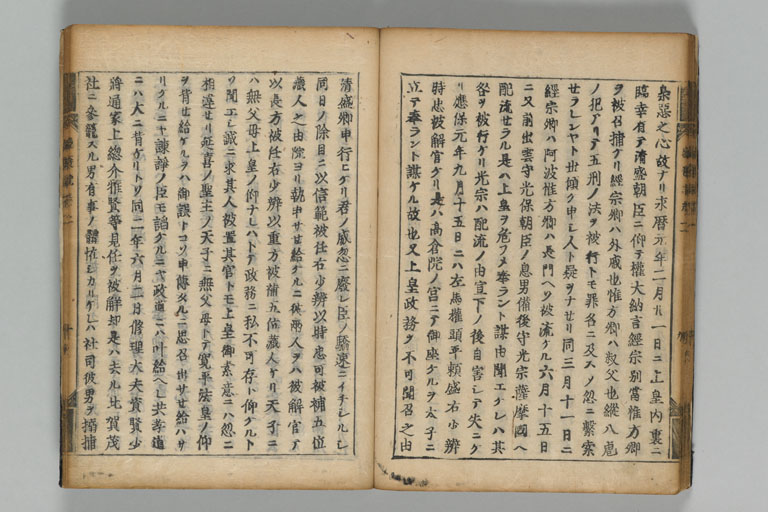 梟惡之心故ナリ永暦元年二月廿一日ニ上皇内裏ニ
臨幸有テ清盛朝臣ニ仰テ權大納言經宗別當惟方卿
ヲ被召捕ケリ經宗卿ハ外戚也惟方卿ハ叔父也縱八虐
ノ犯アリテ五刑ノ法ヲ被行トモ罪名ニ及スノ忽ニ繋索
セラレンヤト世傾ク申シ人ト疑ヲナセリ同三月十一日ニ
經宗卿ハ阿波惟方卿ハ長門ヘソ被流ケル六月十五日
ニ又前出雲守光保朝臣ノ息男備後守光宗薩摩國ヘ
配流セラル是ハ上皇ヲ危ウメ奉ラント謀由聞エケレハ其
咎ヲ被行ケリ光宗ハ配流ノ由宣下ノ後自害シテ失ニケ
リ應保元年九月十五日ニハ左馬權頭平頼盛右少辨
時忠被解官ケリ是ハ高倉院ノ宮ニテ御座ケルヲ太子ニ
立テ奉ラント謀ケル故也又上皇政務ヲ不可聞召之由
清盛卿申行ヒケリ君ノ威忽ニ廢レ臣ノ驕速ニイチシルシ
同日ノ除目ニ以信範被任右少辨以時忠可被補五位
藏人之由院ヨリ執申サセ給ケルニ彼兩人ヲハ被解官テ
以長方被任右少辨以重方被補五位藏人ケリ天子ニ
ハ無父母上皇ノ仰ナレハトテ政務ニ私不可存ト仰ケルト
ソ聞エシ誠ニ求其人被置其官トモ上皇御素意ニハ忽ニ
相違セリ延喜ノ聖主ノ天子ニ無父母トテ寛平法皇ノ仰
ヲ背セ給ケルヲハ御誤トコソ申傳タルニ思召出サセ給ハサ
リケルニヤ諫諍ノ臣モ諂ケルニヤ政道ニハ叶給ヘレ共孝道
ニハ大ニ背ケリトソ同二年六月二日修理大夫資賢少
將通家上總介雅賢等見任ヲ被解却是ハ去ル比賀茂
社ニ參籠スル男有事ノ體恠シカリケレハ社司彼男ヲ搦捕